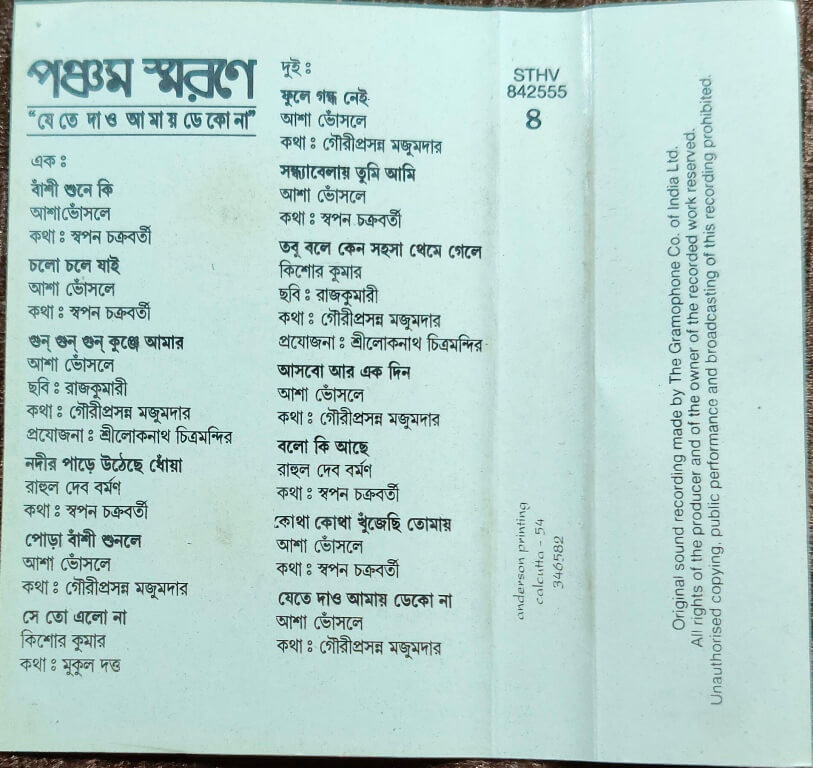 পঞ্চম স্মরণে
"যে তে দা ও আ মা য় ডে কো না"
এক :
বাঁশী শুনে কি
আশা ভোঁসলে
কথা : স্বপন চক্রবর্তী
চলো চলে যাই
আশা ভোঁসলে
কথা : স্বপন চক্রবর্তী
গুন্ গুন্ গুন্ কুঞ্জে আমার
আশা ভোঁসলে
ছবি : রাজকুমারী
কথা : গৌরীপ্রসন্ন মজুমদার
প্রযোজনা : শ্রীলোকনাথ চিত্রমন্দির
নদীর পাড়ে উঠেছে ধোঁয়া
রাহুল দেব বর্মণ
কথা : স্বপন চক্রবর্তী
পোড়া বাঁশী শুনলে
আশা ভোঁসলে
কথা : গৌরীপ্রসন্ন মজুমদার
সে তো এলো না
কিশোর কুমার
কথা : মুকুল দত্ত
দুই :
ফুলে গন্ধ নেই
আশা ভোঁসলে
কথা : গৌরীপ্রসন্ন মজুমদার
সন্ধ্যাবেলায় তুমি আমি
আশা ভোঁসলে
কথা : স্বপন চক্রবর্তী
তবু বলে কেন সহসা থেমে গেলে
কিশোর কুমার
ছবি : রাজকুমারী
কথা : গৌরীপ্রসন্ন মজুমদার
প্রযোজনা : শ্রীলোকনাথ চিত্রমন্দির
আসবো আর এক দিন
আশা ভোঁসলে
কথা : গৌরীপ্রসন্ন মজুমদার
বলো কি আছে
রাহুল দেব বর্মণ
কথা : স্বপন চক্রবর্তী
কোথা কোথা খুঁজেছি তোমায়
আশা ভোঁসলে
কথা : স্বপন চক্রবর্তী
যেতে দাও আমায় ডেকো না
আশা ভোঁসলে
কথা : গৌরীপ্রসন্ন মজুমদার
STHV
842555
8
anderson printing
calcutta - 54
346582
Original sound recording made by The Gramophone Co. of India Ltd.
All rights of the producer and of the owner of the recorded work reserved.
Unauthorised copying, public performance and broadcasting of this recording prohibited.